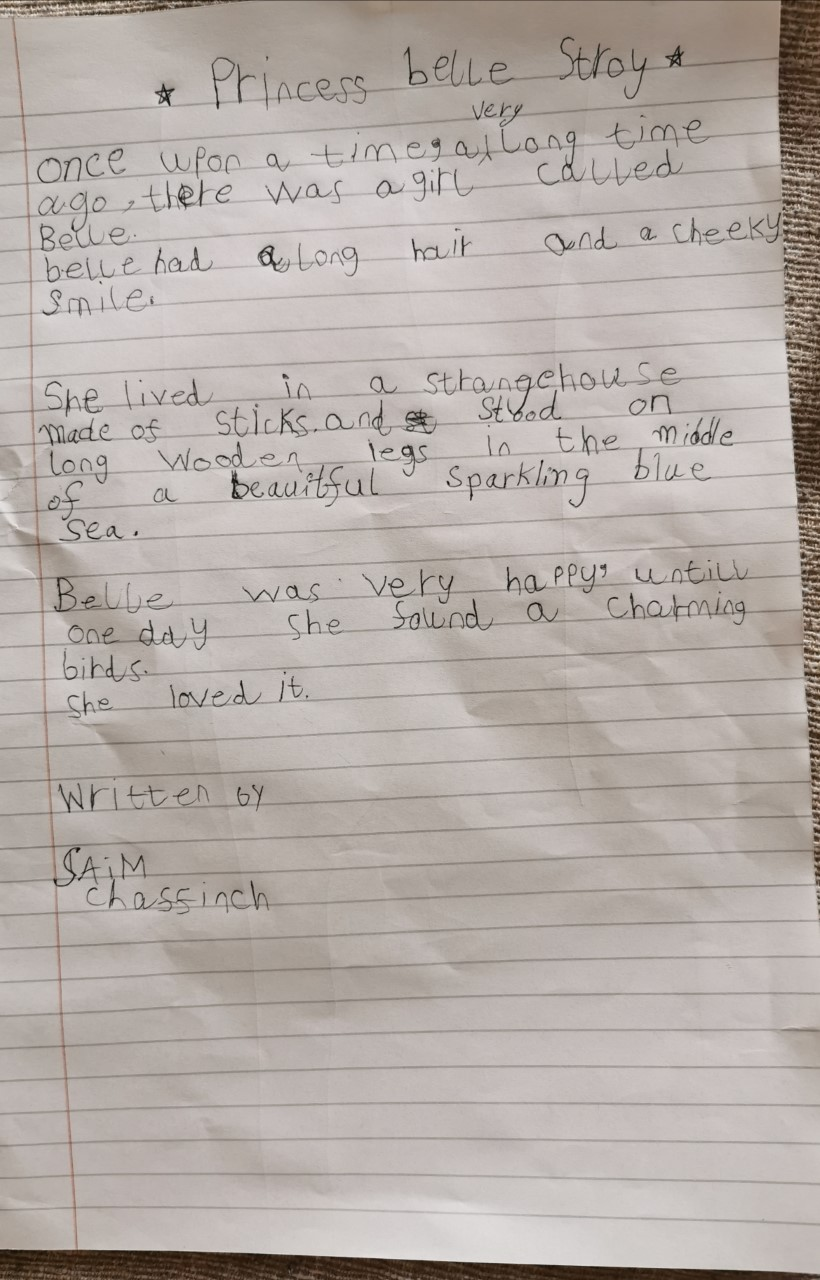 ☆ Princess belle Stroy ☆
very
once upon a time, a long time
ago, there was a girl called
Belle.
belle had a long hair and a cheeky
smile.
She lived in a strange house
made of sticks. and stood on
long wooden legs in the middle
of a beauitful sparkling blue
sea.
Belle was very happy, untill
one day she found a charming
birds.
She loved it.
Written by
SAiM
chassinch